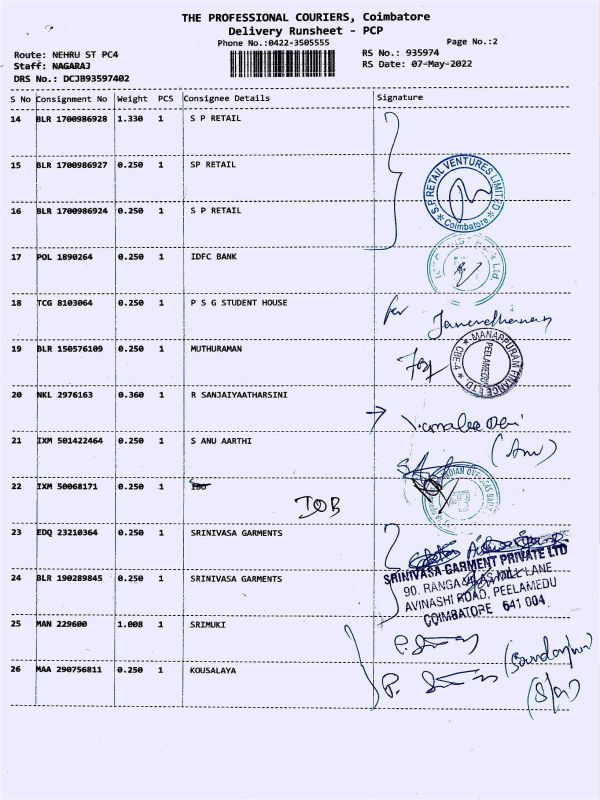 THE PROFESSIONAL COURIERS, Coimbatore
Delivery Runsheet - PCP
Phone No.:0422-3505555 Page No.:2
Route: NEHRU ST PC4 RS No.: 935974
Staff: NAGARAJ RS Date: 07-May-2022
DRS No.: DCJB93597402
S No Consignment No Weight PCS Consignee Details Signature
14 BLR 1700986928 1.330 1 S P RETAIL
15 BLR 1700986927 0.250 1 SP RETAIL
S.P RETAIL VENTURES LIMITED
Coimbatore
16 BLR 1700986924 0.250 1 S P RETAIL
17 POL 1890264 0.250 1 IDFC BANK
Ltd.
18 TCG 8103064 0.250 1 P S G STUDENT HOUSE
for
19 BLR 150576109 0.250 1 MUTHURAMAN
MANAPPURAM FINANCE LTD
CBE-4
PEELAMEDU
20 NKL 2976163 0.360 1 R SANJAIYAATHARSINI
21 IXM 501422464 0.250 1 S ANU AARTHI
(Anu)
22 IXM 50068171 0.250 1 IBO
IOB
INDIAN OVERSEAS BANK
23 EDQ 23210364 0.250 1 SRINIVASA GARMENTS
SRINIVASA GARMENT PRIVATE LTD
24 BLR 190289845 0.250 1 SRINIVASA GARMENTS
90, RANGA MILL LANE
AVINASHI ROAD, PEELAMEDU
COIMBATORE 641 004.
25 MAN 229600 1.008 1 SRIMUKI
26 MAA 290756811 0.250 1 KOUSALAYA